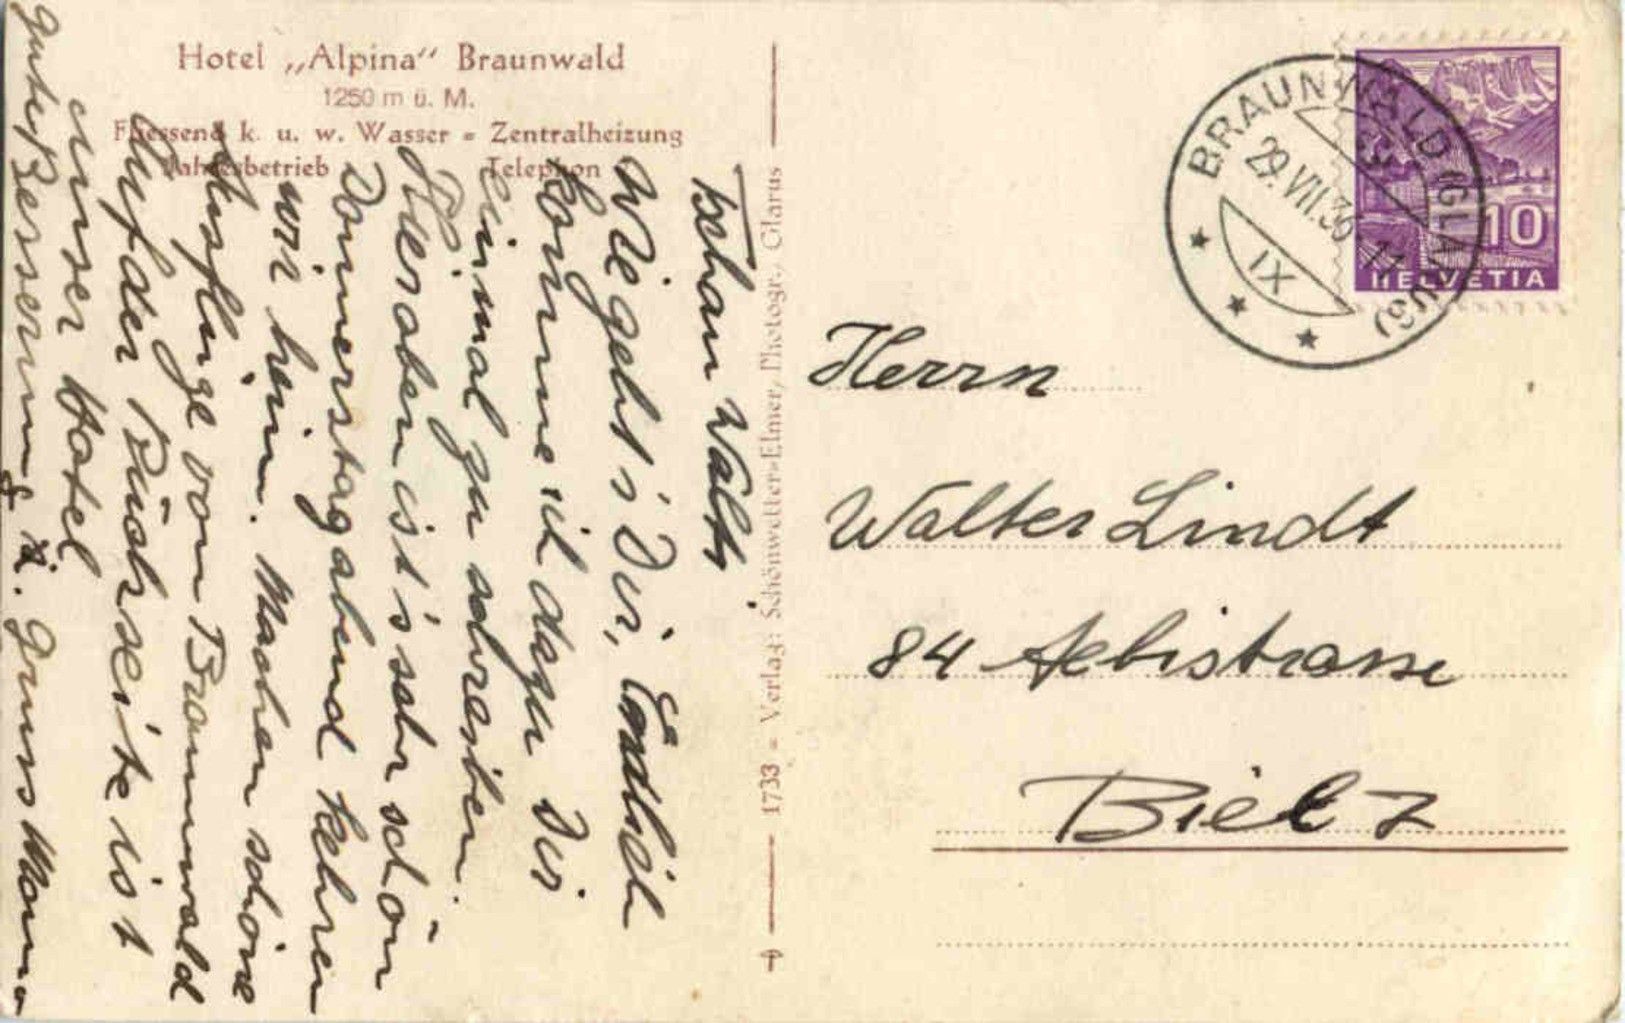 Hotel „Alpina“ Braunwald
1250 m ü. M.
Fliessend k. u. w. Wasser = Zentralheizung
Jahresbetrieb Telephon
Tschau Walti
Wie geht's Dir, Endlich
komme ich dazu Dir
einmal zu schreiben.
Hieroben ist's sehr schön
Donnerstagabend kehren
wir heim. Machen schöne
Ausflüge von Braunwald
Auf der Rückseite ist
unser Hotel
gute Besserung &. Gruss
1733 - Verlag: Schönwetter=Elmer, Photogr. Glarus
BRAUNWALD (GLARUS)
29.VII.36
IX
10
HELVETIA
Herrn
Walter Lindt
84 Aebistrasse
Biel 7